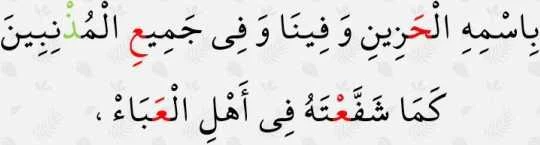 بِاسْمِهِ الْحَزِينِ وَ فِينَا وَ فِی جَمِيعِ الْمُذْنِبِينَ
كَمَا شَفَّعْتَهُ فِی أَهْلِ الْعَبَاءْ ،